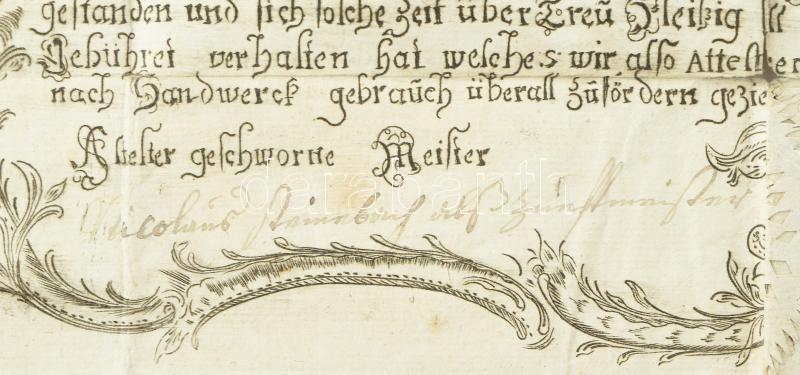 gestanden und sich solche Zeit über Treü Fleißig
Gebühret verhalten hat welches wir also Attester
nach Handwerck gebraüch überall zufördern gezie
Ältester geschworne Meister
Nicolaus Steinebach als Zunfftmeister
darabanth